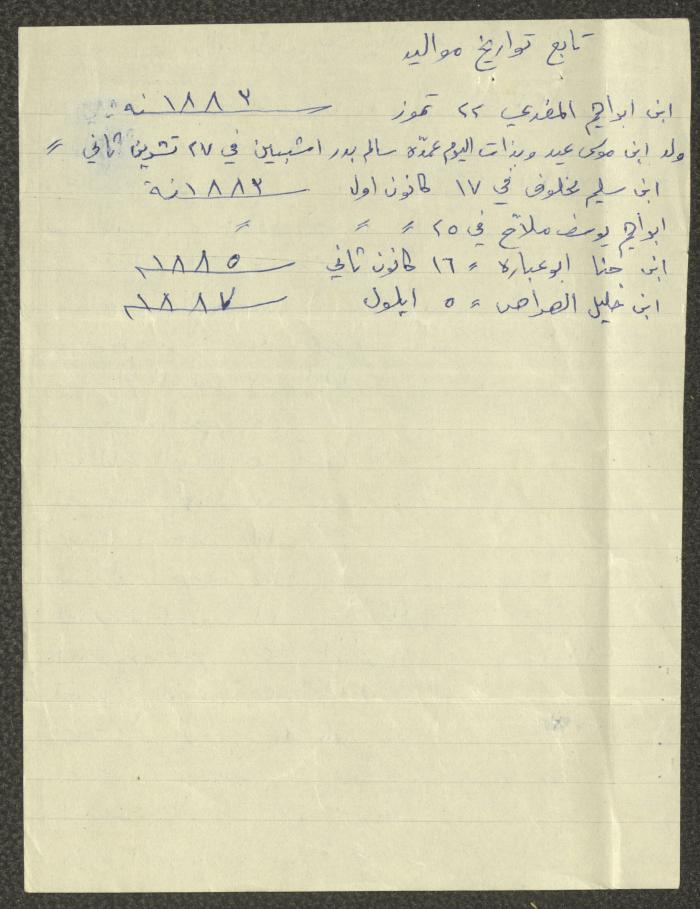 تابع تواريخ مواليد
ابن ابراهيم المغدي ٢٢ تموز سنة ١٨٨٣
ولد ابن موسى عيد وبذات اليوم عمّده سالم بدر اشبين في ٢٧ تشرين ثاني 〃
ابن سليم مخلوف في ١٧ كانون اول سنة ١٨٨٣
ابراهيم يوسف ملاّح في ٢٥ 〃 〃 〃
ابن حنا ابو عباره 〃 ١٦ كانون ثاني سنة ١٨٨٥
ابن خليل الصراص 〃 ٥ ايلول سنة ١٨٨٧